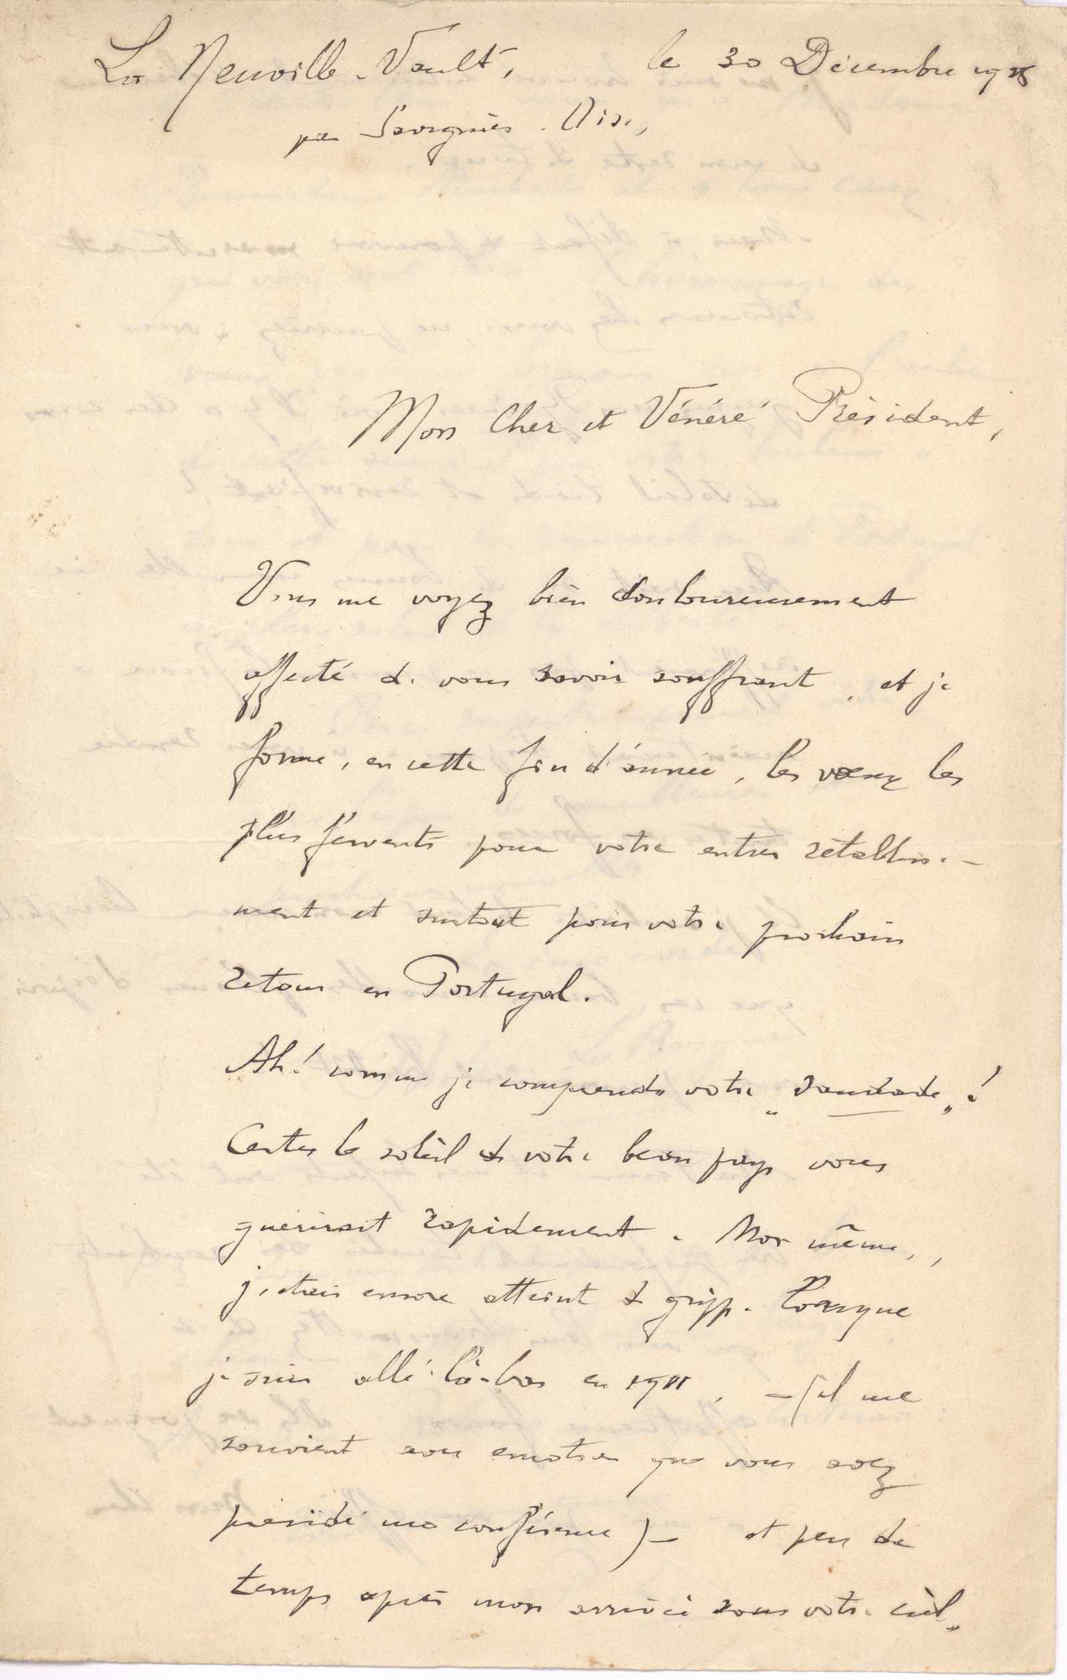 La Neuville-Vault, le 30 Décembre
par Savignies. Oise,
Mon Cher et Vénéré Président,
Vous me voyez bien douloureusement
affecté de vous savoir souffrant, et je
forme, en cette fin d'année, les vœux les
plus fervents pour votre entier rétablisse-
ment et surtout pour votre prochain
retour en Portugal.
Ah! comme je comprends votre „saudade„!
Certes le soleil de votre beau pays vous
guérirait rapidement. Moi même,,
j'étais encore atteint de grippe lorsque
je suis allé là-bas en 1911, —(il me
souvient avec émotion que vous avez
présidé ma conférence)— et peu de
temps après mon arrivée sous votre ciel„